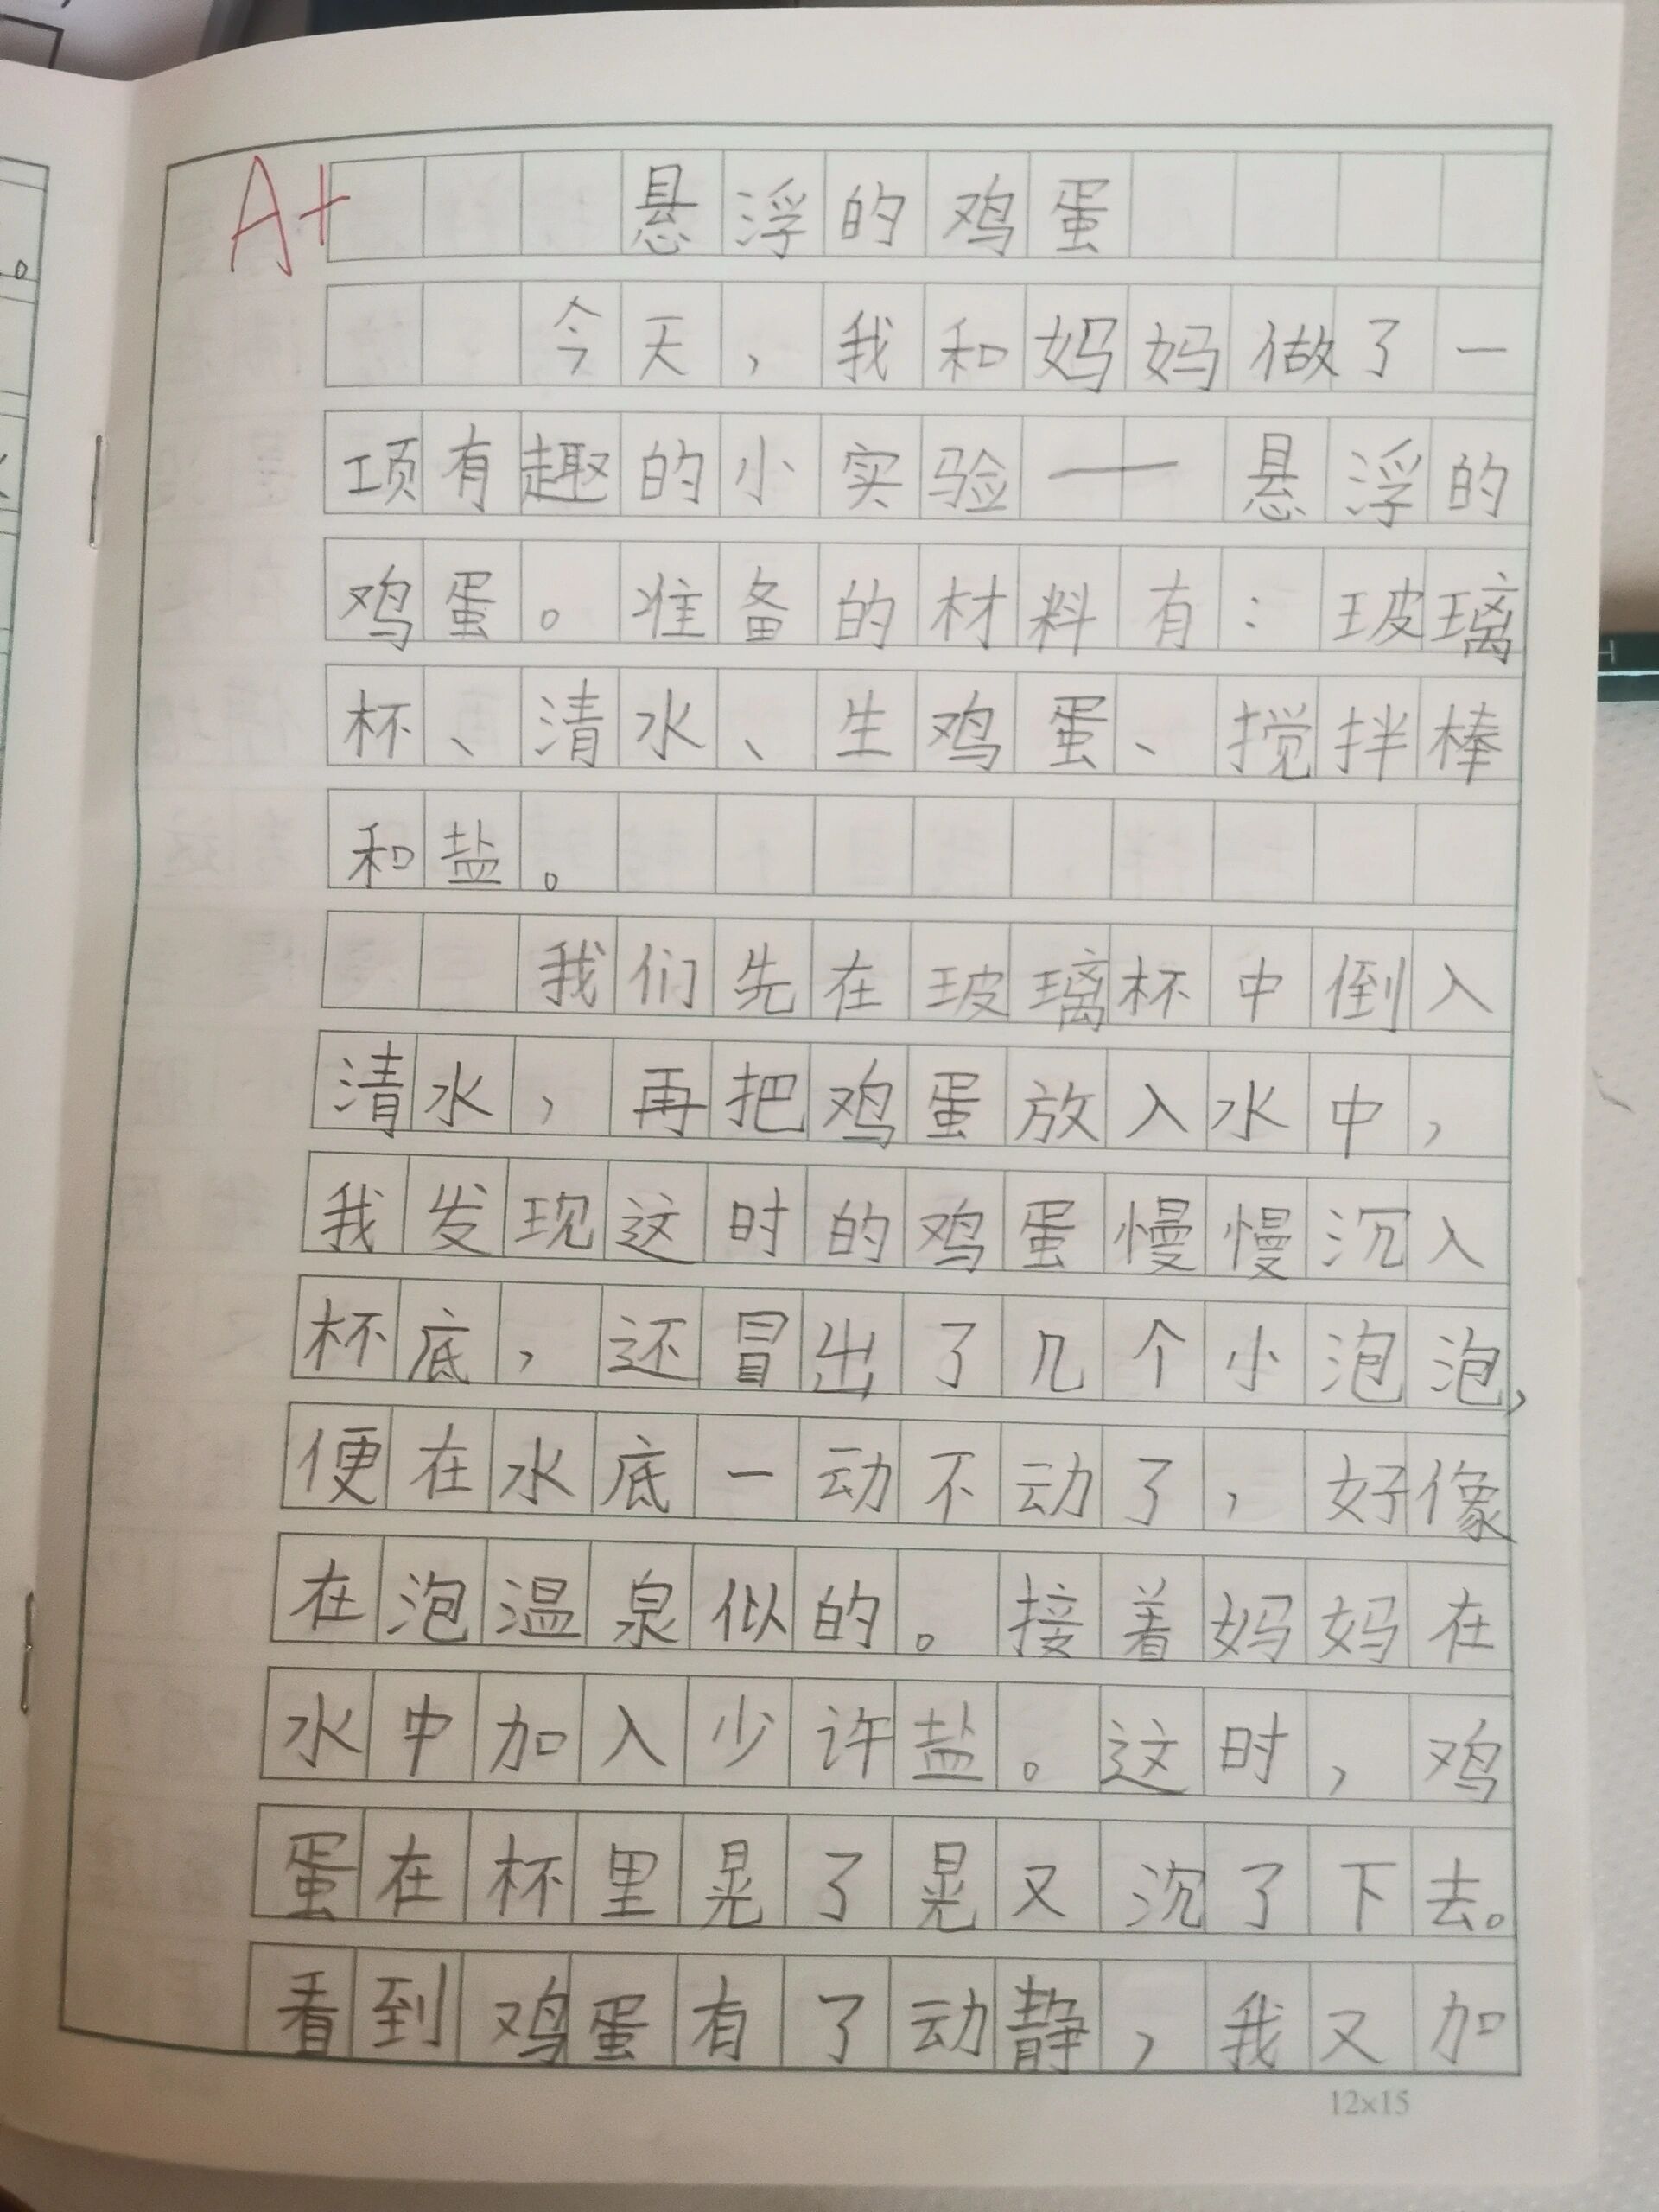 A+
悬浮的鸡蛋
今天，我和妈妈做了一
项有趣的小实验——悬浮的
鸡蛋。准备的材料有：玻璃
杯、清水、生鸡蛋、搅拌棒
和盐。
我们先在玻璃杯中倒入
清水，再把鸡蛋放入水中，
我发现这时的鸡蛋慢慢沉入
杯底，还冒出了几个小泡泡，
便在水底一动不动了，好像
在泡温泉似的。接着妈妈在
水中加入少许盐。这时，鸡
蛋在杯里晃了晃又沉了下去。
看到鸡蛋有了动静，我又加
12×15